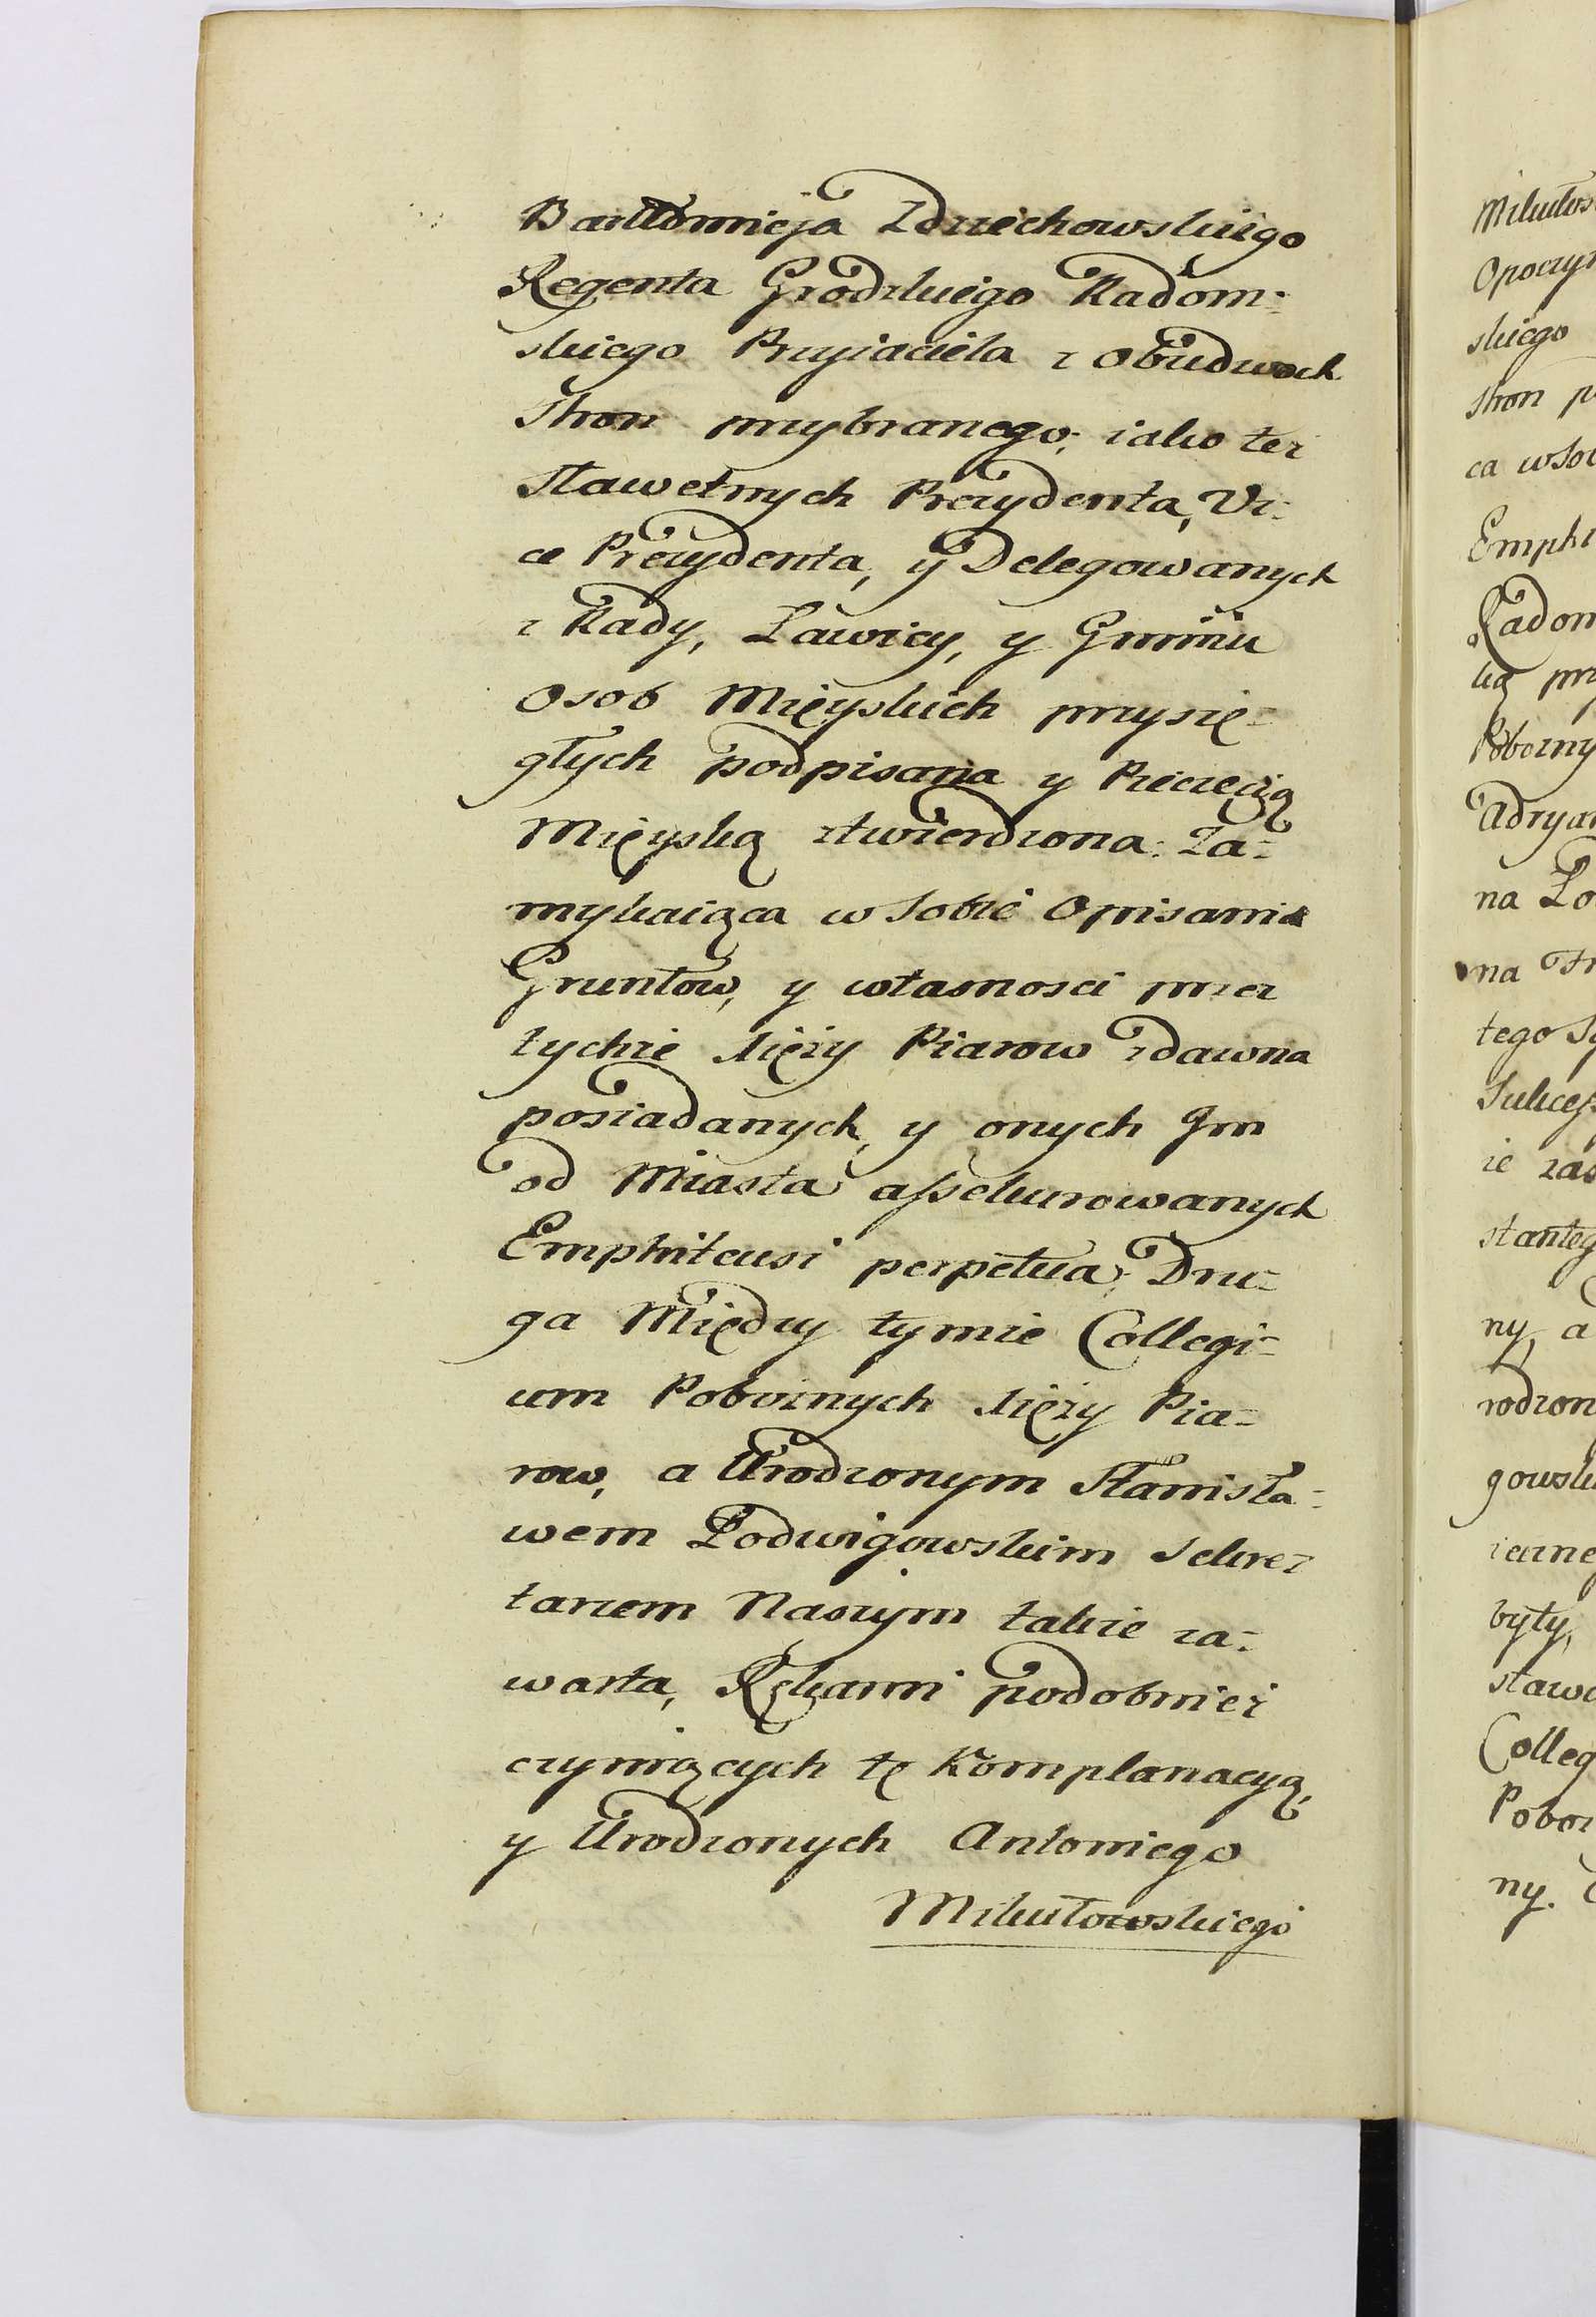 Bartłomieja Zdziechowskiego
Regenta Grodzkiego Radom-
skiego Przyiaciela z obudwoch
Stron przybranego; iako też
Sławetnych Prezydenta, Vi-
ce Prezydenta, y Delegowanych
z Rady, Ławicy, y Gminu
Osob Mięyskich przysię-
głych podpisana y Pieczęcią
Mięyską ztwierdzona: Za-
mykaiąca w Sobie Opisanie
Gruntow, y własnosci przez
tychże Xięży Piarow zdawna
posiadanych, y onych Jm
od Miasta assekurowanych
Emphiteusi perpetua; Dru-
ga Między tymże Collegi-
um Pobożnych Xięży Pia-
row, a Urodzonym Stanisła-
wem Łodwigowskim Sekre-
tarzem Naszym także za-
warta, Rękami podobnież
czyniących tę Komplanacyą,
y Urodzonych Antoniego
Mikułowskiego
Mikułows
Opoczyn
skiego
Stron p
ca w Sob
Emphi
Radom
ką prz
Pobożny
Adryan
na Ło
na
tego Sy
Sukcess
że zas
stanteg
ny, a
rodzon
gowsk
były,
staw
Colleg
Poboż
ny.